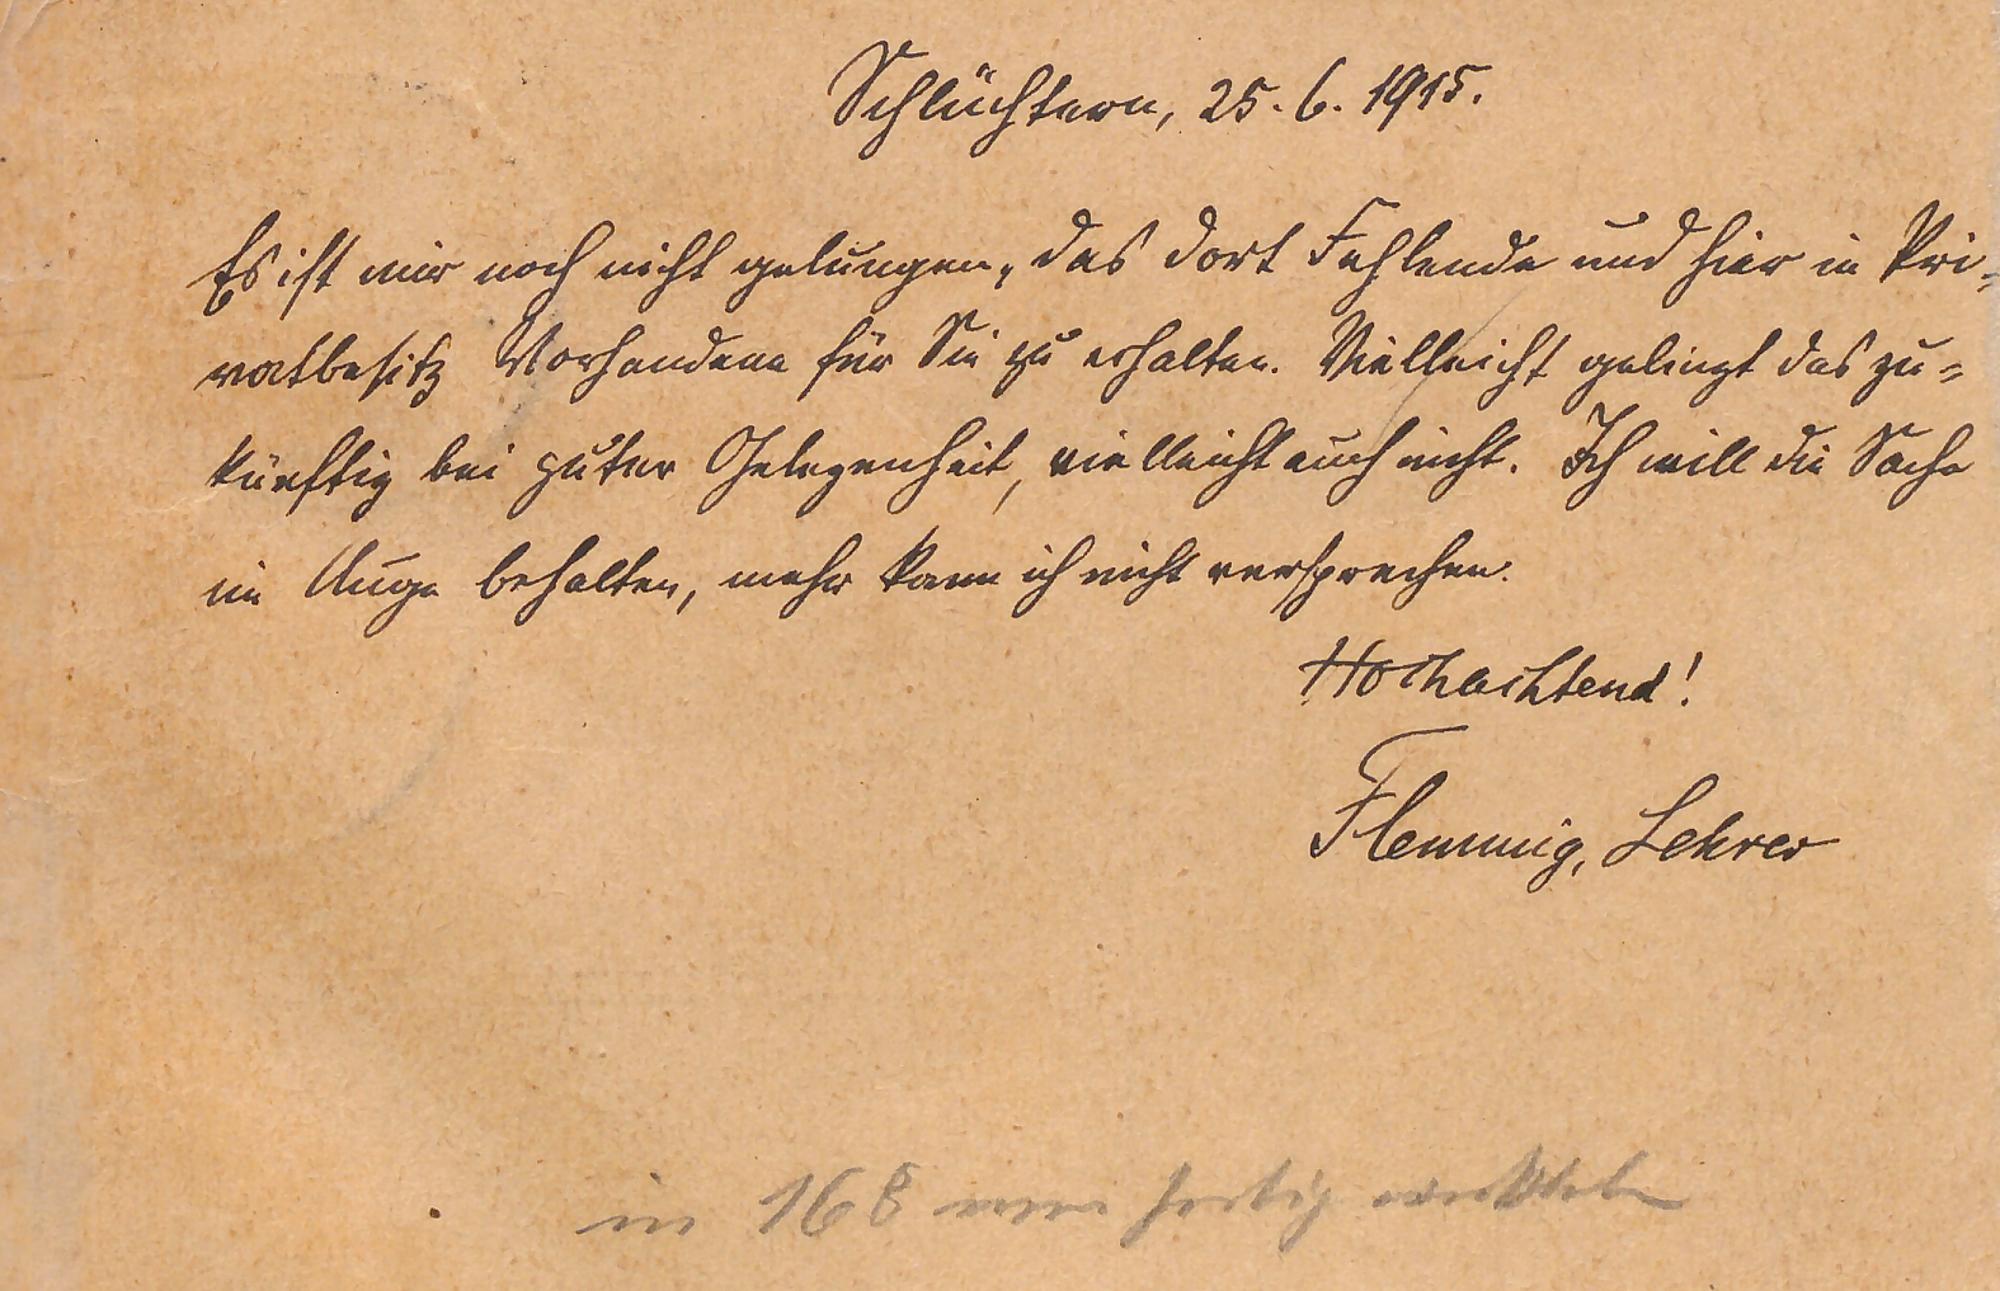 Schlüchtern, 25. 6. 1915.
Es ist mir noch nicht gelungen, das dort Fehlende und hier in Pri-
vatbesitz Vorhandene für Sie zu erhalten. Vielleicht gelingt das zu-
künftig bei guter Gelegenheit, vielleicht auch nicht. Ich will die Sache
im Auge behalten, mehr kann ich nicht versprechen.
Hochachtend!
Flemmig, Lehrer
in 168 fertig